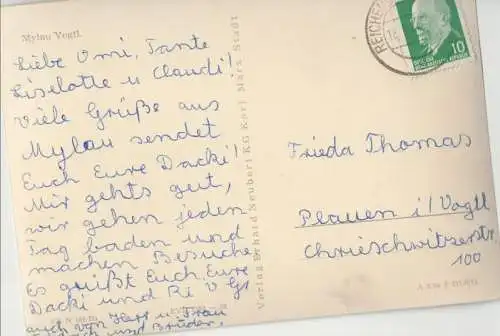 Mylau Vogtl.
Liebe Omi, Tante
Liselotte u Claudi!
Viele Grüße aus
Mylau sendet
Euch Eure Dacki!
Mir gehts gut,
wir gehen jeden
Tag baden und
machen Besuche
Es grüßt Euch Eure
Dacki und
auch von Herr u Frau
und Brüder,
Verlag Erhard Neubert KG Karl Marx Stadt
REICHE
10
Frieda Thomas
Plauen i/Vogtl
Chrieschwitzerstr
100